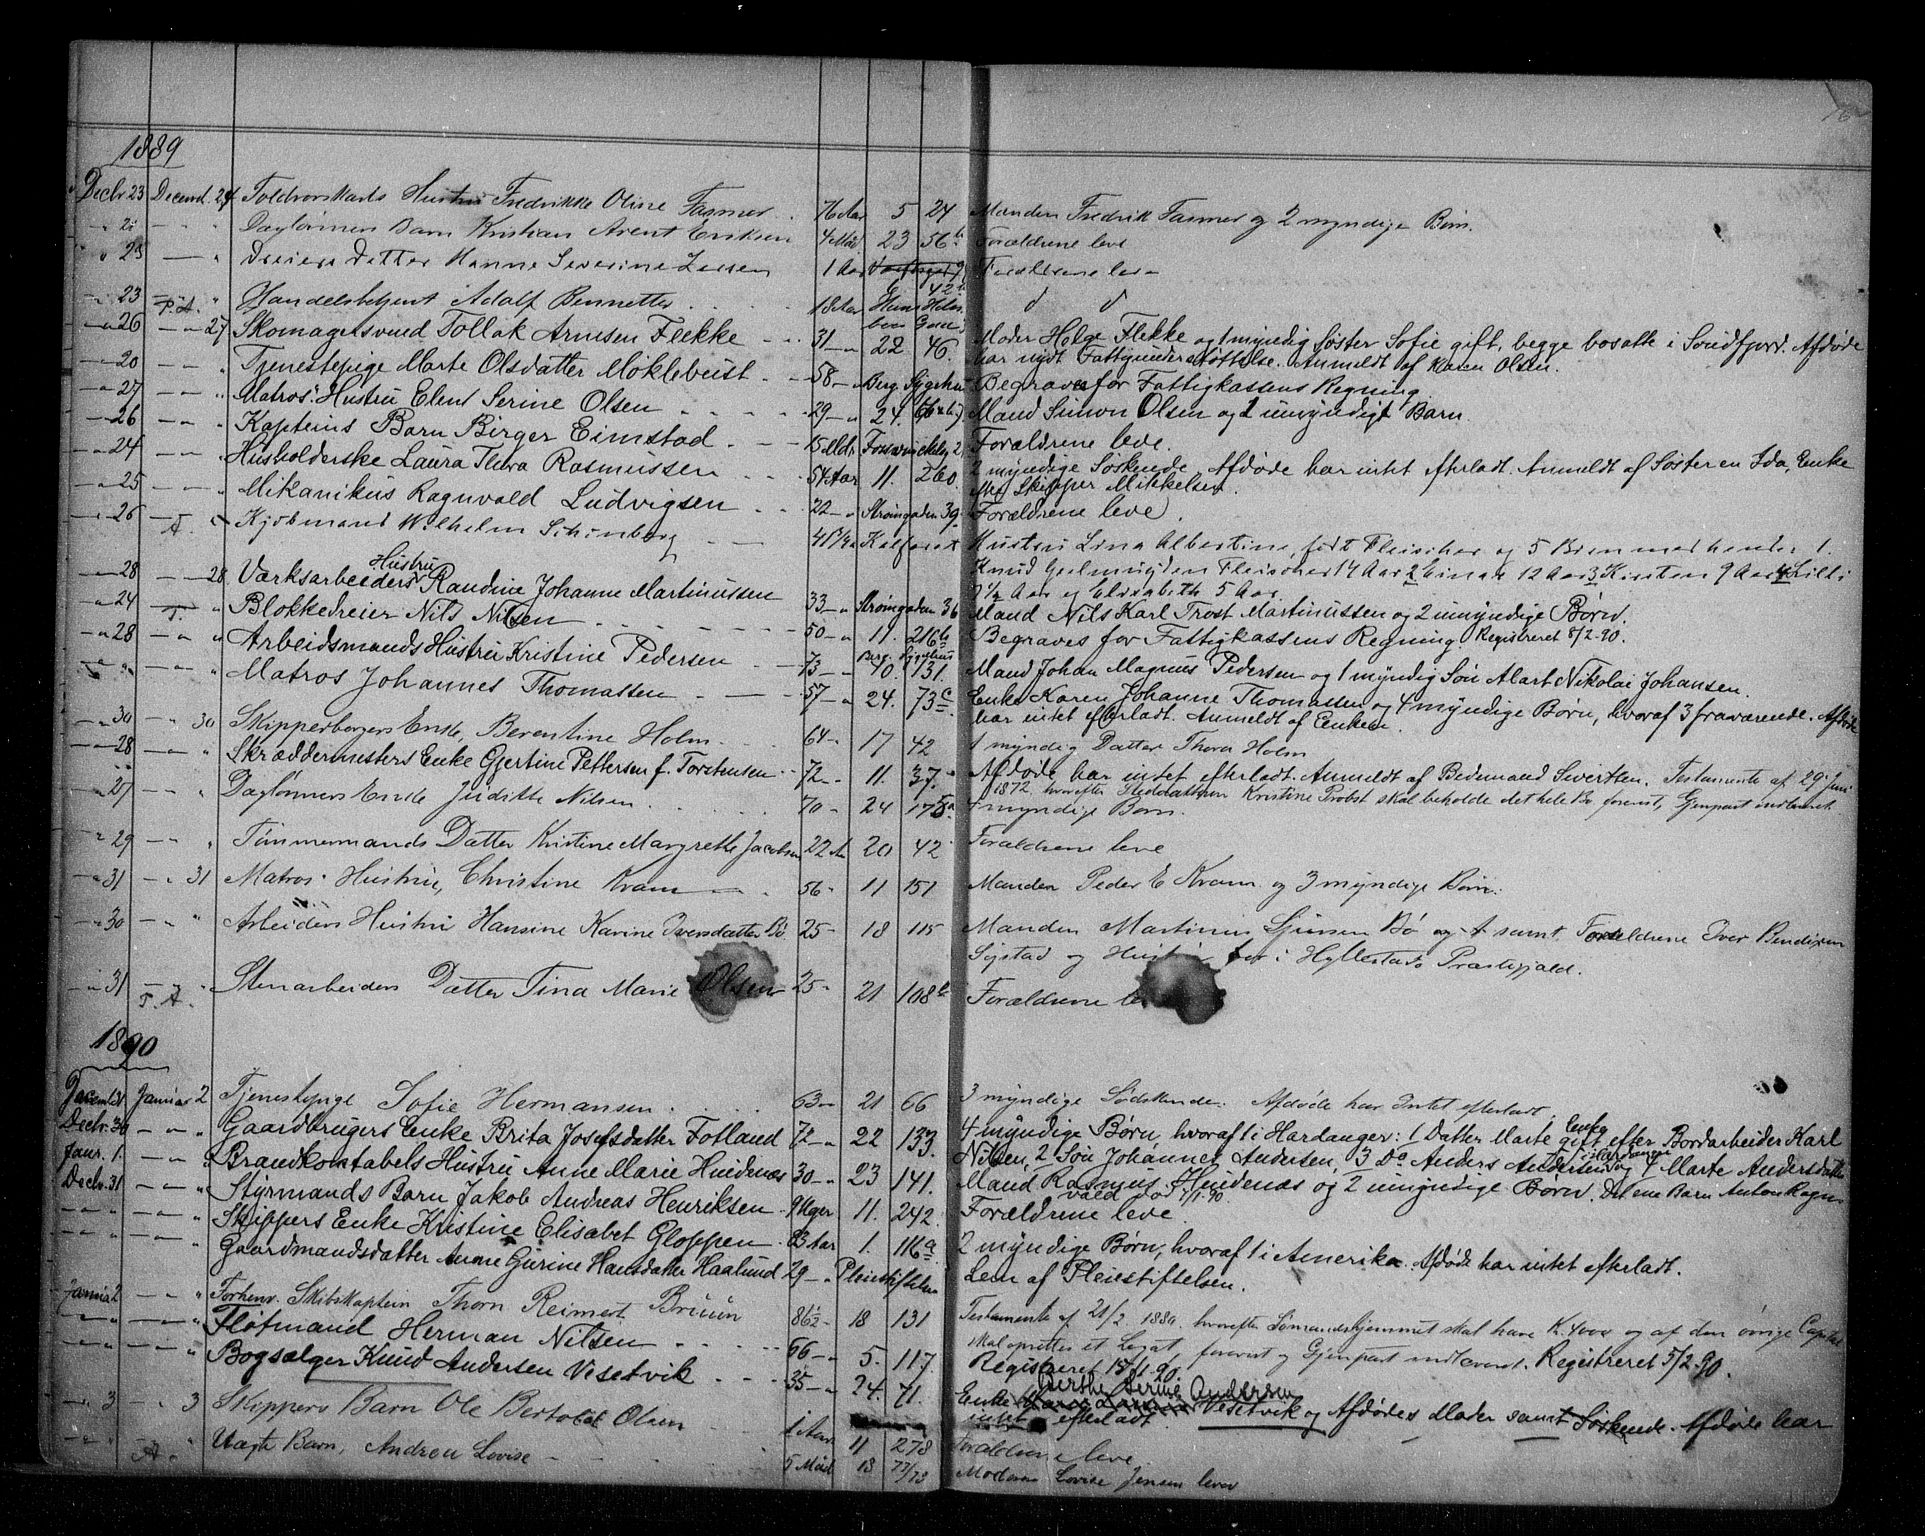 1889
Decbr 23 Decemb. 24 Toldvorskarls Hustru Fredrikke Oline Fasmer 76 Aar 5 24 Manden Fredrik Fasmer og 2 myndige Børn.
Daglønners Barn Kristian Arent Eriksen 4 Md 23 56b Forældrene leve
" 23 — " Dreiers Datter Hanne Severine 1 Aar Forældrene leve
" 23 T.A. " Handelsbetjent Adolf Bennetter 18 Aar d d
" 26 — " 27 Skomagersvend Tollak Arnesen Flekke 31 — " 22 46. Moder Helge Flekke og 1 myndig Søster Sofie gift, begge bosatte i Søndfjord. Afdøde
har nydt Fattigunderstøttelse. Anmeldt af Karen Olsen.
" 20 — " Tjenestepige Marte Olsdatter Møklebust 58 — Berg. Sygehus Begraves for Fattigkassens Regning.
" 27 — " Matros' Hustru Elen Serine Olsen 29 — " 24. Mand Simon Olsen og 2 umyndigt Barn.
" 26 — " Kapteins Barn Birger Eimstad 15 Mdr. Forældrene leve.
" 24 — " Husholderske Laura Thera Rasmussen 54 Aar 11. 260 2 myndige Søskende. Afdøde har intet efterladt. Anmeldt af Søsteren Ida, Enke
efter Skipper Mikkelsen.
" 25 — " Mikanikus Ragnvald Ludvigsen 22 — " Strømgaden 39. Forældrene leve.
" 26 A. " Kjøbmand Wilhelm Schønberg Kalfaret Hustru Lina Albertine, født Fleischer og 5 Børn med hende: 1.
Knud Geelmuyden Fleischer 14 Aar 2 Einar 12 Aar 3 Kirsten 9 Aar 4 Lilli
7 1/2 Aar og Elisabeth 5 Aar
" 28 — " 28 Værksarbeiders Hustru Randine Johanne Martinussen 33 — " Strømgaden 36 Mand Nils Karl Trost Martinussen og 2 umyndige Børn.
" 24 T. " Blokkedreier Nils Nilsen 50 — " 11. 216b Begraves for Fattigkassens Regning. Registreret 8/2-90.
" 28 — " Arbeidsmands Hustru Kristine Pedersen 73 — " Berg. Sygehus 40 131. Mand Johan Magnus Pedersen og 1 myndig Søn Alart Nikolai Johansen.
" " — " Matros Johannes Thomassen 57 — " 24. 73c. Enke Karen Johanne Thomassen og 4 myndige Børn, hvoraf 3 fraværende. Afdøde
har intet efterladt. Anmeldt af Enken.
" 30 — " 30 Skipperborgers Enke, Berentine Holm 64 — 17 42 1 myndig Datter Thora Holm
" 28 — " Skræddermesters Enke Gjertine Pettersen f. Torstensen 72 — 11. 37. Afdøde har intet efterladt. Anmeldt af Bedemand Sivertsen. Testamente af 29 Juni
1872, hvorefter Pleiedatteren Kristine Probst skal beholde det hele Bo forevist, Gjenpart indleveret.
" 27 — " Dagløners Enke Juditte Nilsen 70 — 24 175a. 4 myndige Børn.
" 29 — " Tømmermands Datter Kristine Margrethe Jacobsen 22 Aar 20 42 Forældrene leve
" 31 — " 31 Matros' Hustru, Christine Kram 56 — 11 151 Manden Peder E Kram og 3 myndige Børn.
" 30 — " Arbeiders Hustru Hansine Karine Iversdatter Bø 25 — 18 115 Manden Martinus Sjursen Bø og samt Forældrene Iver Bendixen
Systad og Hustru i Hyllestads Præstegjæld.
" 31 T.A. " Stenarbeiders Datter Tina Marie Olsen 25 — 21 108b Forældrene leve
1890
Decembr 31 Januar 2 Tjenestepige Sofie Hermansen 63 — 21 66 3 myndige Sødskende. Afdøde har Intet efterladt.
Decbr. 30 — " Gaardbrugers Enke Brita Josefsdatter Fotland 72 — " 22 133. 4 myndige Børn, hvoraf i Hardanger: 1 Datter Marte Enke gift efter Bordarbeider Karl
Nilsen, 2 Søn Johannes Andersen, 3 Do Anders Andersen i Hardanger og 4 Marte Andersdatter
Janr. 1. — " Brandkonstabels Hustru Anne Marie Huidenæs 30 — " 23 141. Mand Rasmus Huidenæs og 2 umyndige Børn. Det ene Barn Anton Ragn-
vald
Decbr. 31 — " Styrmands Barn Jakob Andreas Henriksen 9 Uger 11. 242. Forældrene leve.
" " — " Skippers Enke Kristine Elisabet Gloppen 83 Aar 1. 116a 2 myndige Børn, hvoraf 1 i Amerika. Afdøde har intet efterladt.
" " — " Gaardmandsdatter Anne Gurine Hansdatter Haalund 29 — " Pleiestiftelsen Lem af Pleiestiftelsen.
Januar 2 — " Forhenv. Skibskaptein Thorn Reimert Bruun 86 1/2 — 18 131 Testamente af 21/2 1880. hvorefter Sømandshjemmet skal have K. 4000 og af den øvrige Capital
skal oprettes et Legat, forevist og Gjenpart indleveret. Registreret 5/2-90.
" " — " Fløtmand Herman Nilsen 66 — " 5. 117. Registreret 18/1-90.
" " — " Bogsælger Knud Andersen Vesetvik 35 — " 24. 71. Enke Berthe Serine Andersen Vesetvik og Afdødes Moder samt Søskende. Afdøde har
intet efterladt
" 3 — " 3 Skippers Barn Ole Bertolat Olsen 1 Aar 11 278 Forældrene leve.
" " A. " Uægte Barn, Andrea Lovise 5 Mdr 13 77/73 Moderen Lovise Jensen lever